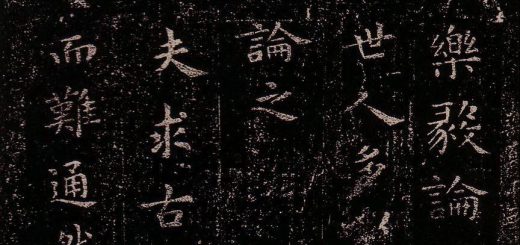 樂毅論
世人多
論之
夫求古
而難通